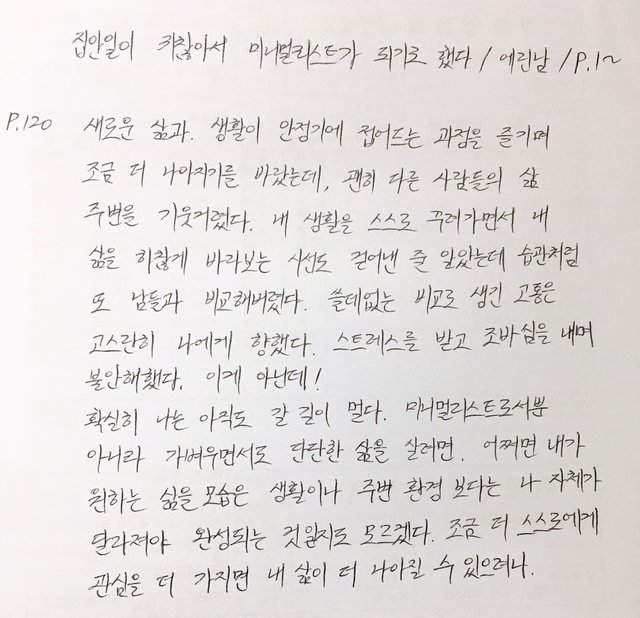 집안일이 귀찮아서 미니멀리스트가 되기로 했다 / 에린남 / P.1~
P.120 새로운 삶과. 생활이 안정기에 접어드는 과정을 즐기며
조금 더 나아지기를 바랐는데, 괜히 다른 사람들의 삶
주변을 기웃거렸다. 내 생활을 스스로 꾸려가면서 내
삶을 하찮게 바라보는 시선도 걷어낸 줄 알았는데 습관처럼
또 남들과 비교해버렸다. 쓸데없는 비교로 생긴 고통은
고스란히 나에게 향했다. 스트레스를 받고 조바심을 내며
불안해했다. 이게 아닌데!
확실히 나는 아직도 갈 길이 멀다. 미니멀리스트로서뿐
아니라 가벼우면서도 단단한 삶을 살려면. 어쩌면 내가
원하는 삶을 모습은 생활이나 주변 환경 보다는 나 자체가
달라져야 완성되는 것일지도 모르겠다. 조금 더 스스로에게
관심을 더 가지면 내 삶이 더 나아질 수 있으려나.